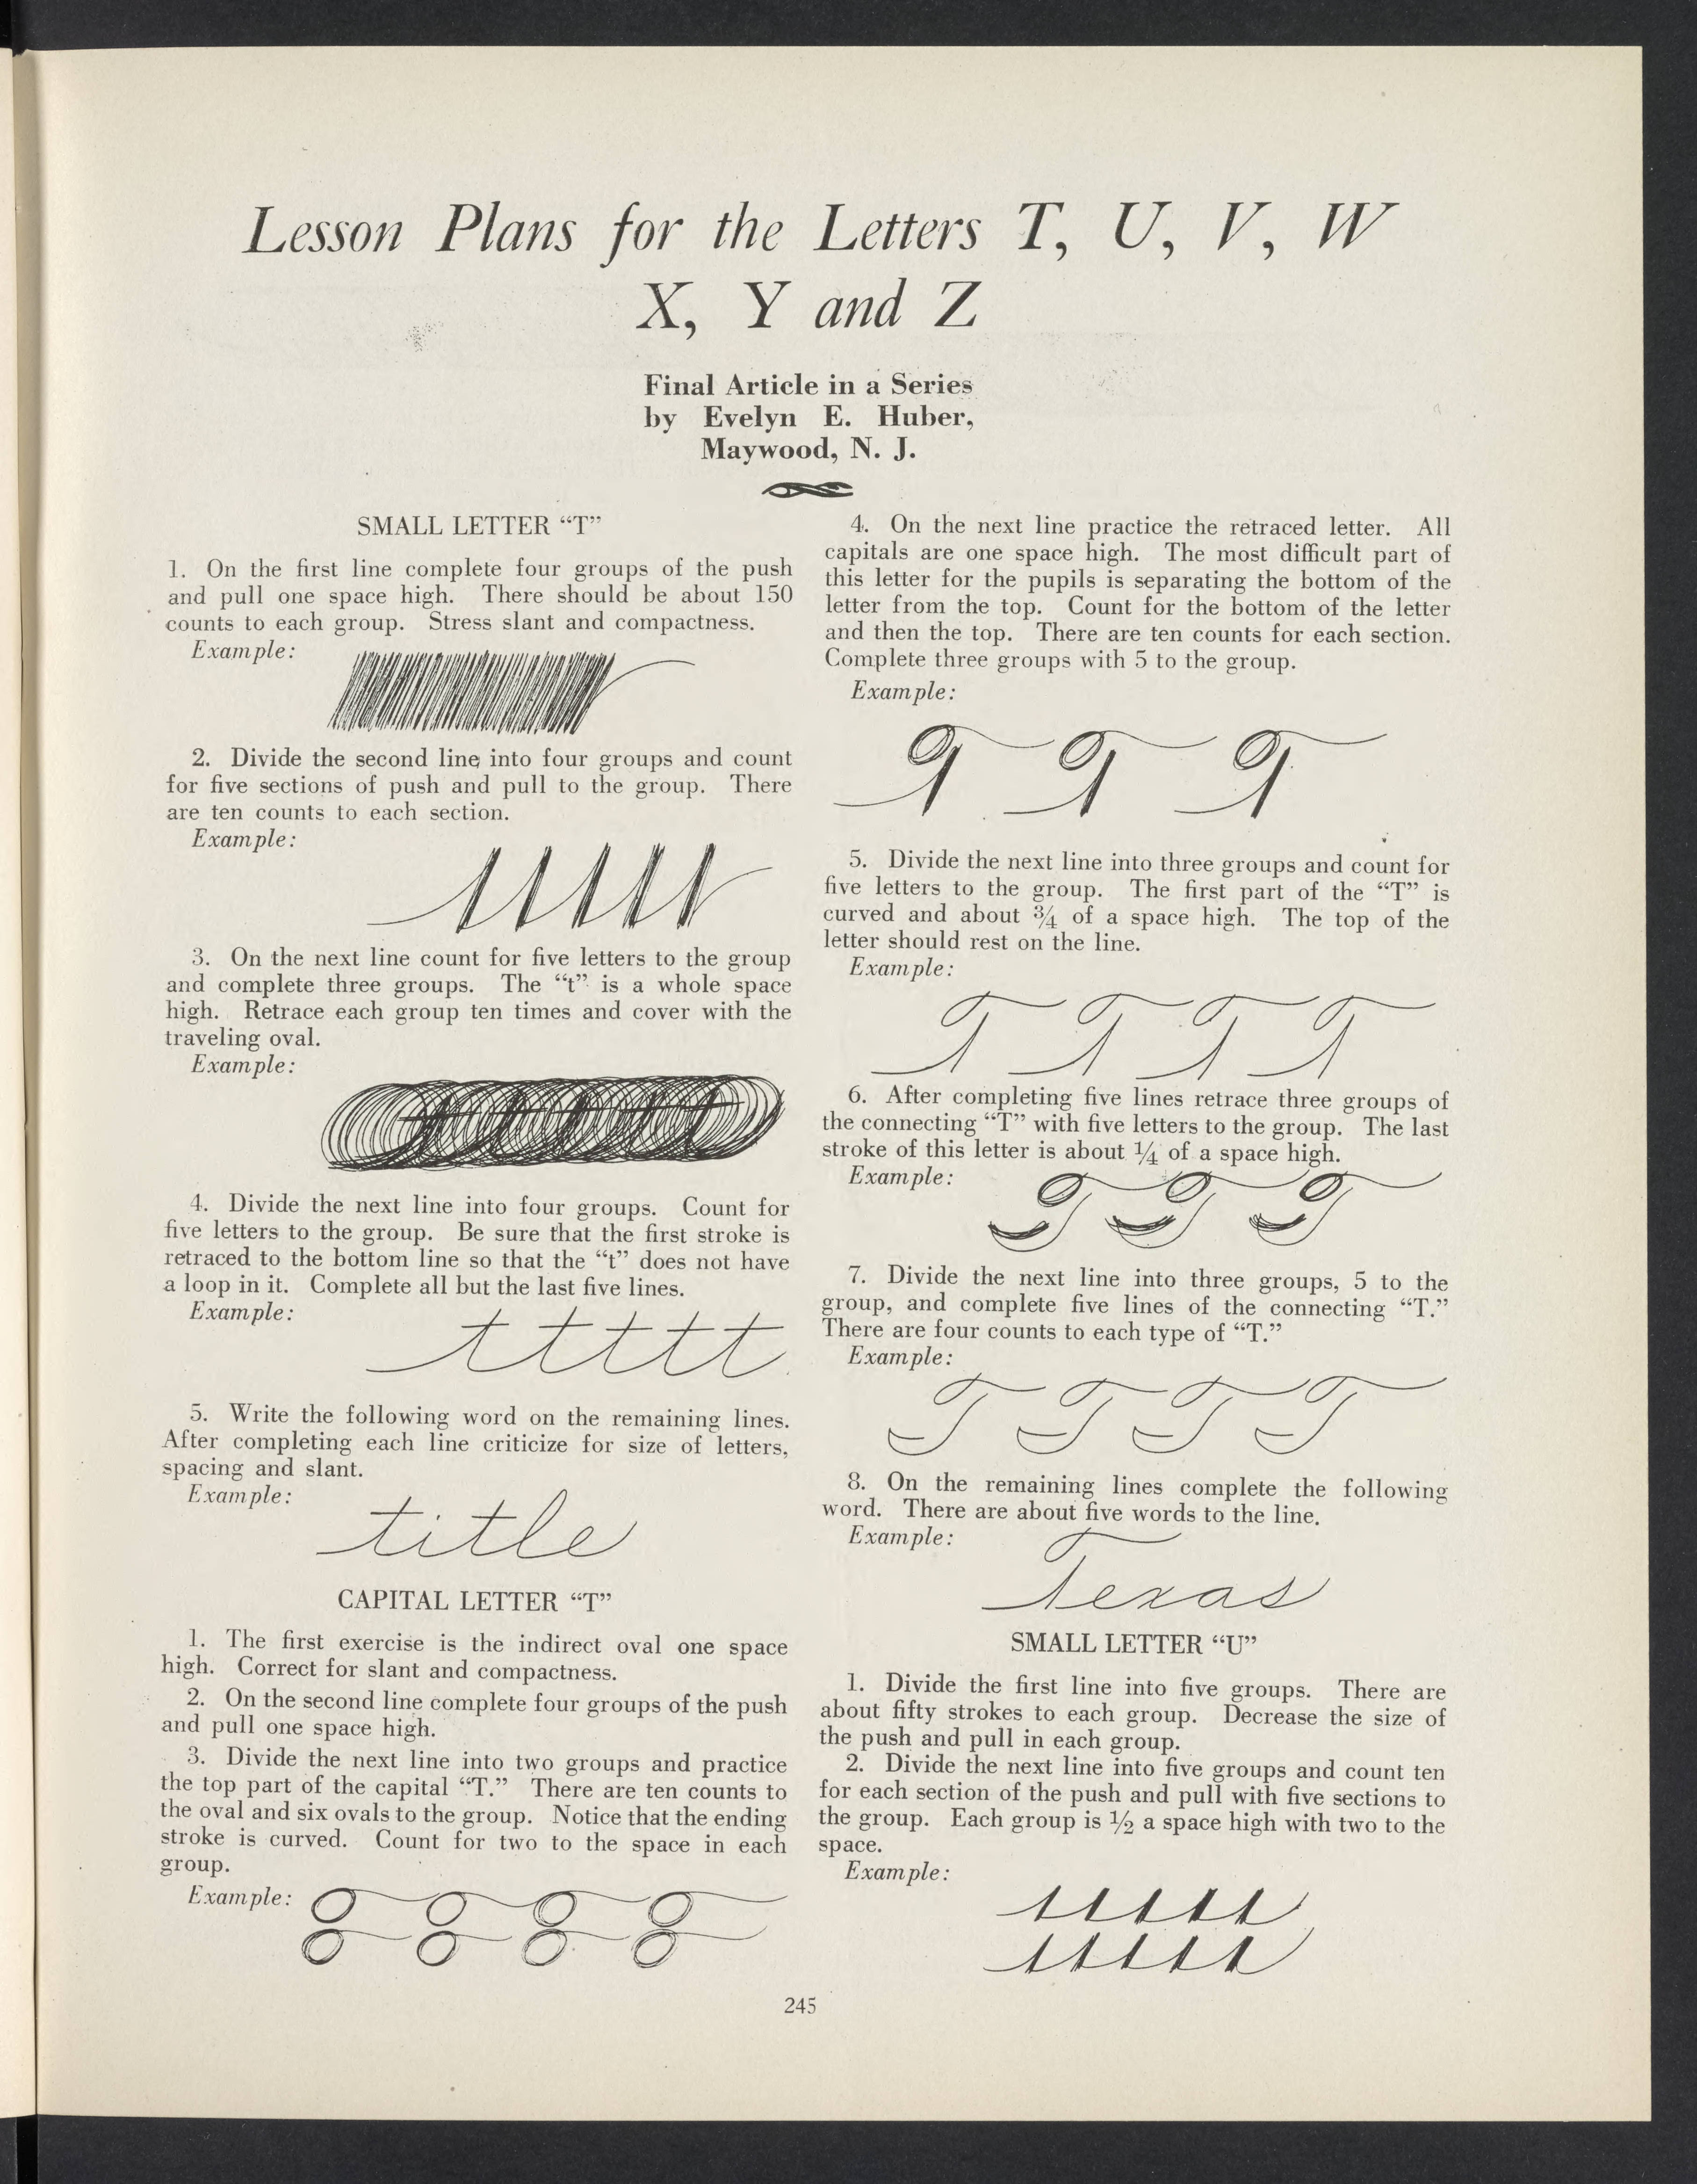 Lesson Plans for the Letters T, U, V, W
X, Y and Z
Final Article in a Series
by Evelyn E. Huber,
Maywood, N. J.
SMALL LETTER “T”
1. On the first line complete four groups of the push
and pull one space high. There should be about 150
counts to each group. Stress slant and compactness.
Example:
2. Divide the second line into four groups and count
for five sections of push and pull to the group. There
are ten counts to each section.
Example:
3. On the next line count for five letters to the group
and complete three groups. The “t” is a whole space
high. Retrace each group ten times and cover with the
traveling oval.
Example:
ttttt
4. Divide the next line into four groups. Count for
five letters to the group. Be sure that the first stroke is
retraced to the bottom line so that the “t” does not have
a loop in it. Complete all but the last five lines.
Example:
ttttt
5. Write the following word on the remaining lines.
After completing each line criticize for size of letters,
spacing and slant.
Example:
title
CAPITAL LETTER “T”
1. The first exercise is the indirect oval one space
high. Correct for slant and compactness.
2. On the second line complete four groups of the push
and pull one space high.
3. Divide the next line into two groups and practice
the top part of the capital “T.” There are ten counts to
the oval and six ovals to the group. Notice that the ending
stroke is curved. Count for two to the space in each
group.
Example:
4. On the next line practice the retraced letter. All
capitals are one space high. The most difficult part of
this letter for the pupils is separating the bottom of the
letter from the top. Count for the bottom of the letter
and then the top. There are ten counts for each section.
Complete three groups with 5 to the group.
Example:
T T T
5. Divide the next line into three groups and count for
five letters to the group. The first part of the “T” is
curved and about ¾ of a space high. The top of the
letter should rest on the line.
Example:
T T T T
6. After completing five lines retrace three groups of
the connecting “T” with five letters to the group. The last
stroke of this letter is about ¼ of a space high.
Example:
T T T
7. Divide the next line into three groups, 5 to the
group, and complete five lines of the connecting “T.”
There are four counts to each type of “T.”
Example:
T T T T
8. On the remaining lines complete the following
word. There are about five words to the line.
Example:
Texas
SMALL LETTER “U”
1. Divide the first line into five groups. There are
about fifty strokes to each group. Decrease the size of
the push and pull in each group.
2. Divide the next line into five groups and count ten
for each section of the push and pull with five sections to
the group. Each group is ½ a space high with two to the
space.
Example:
245